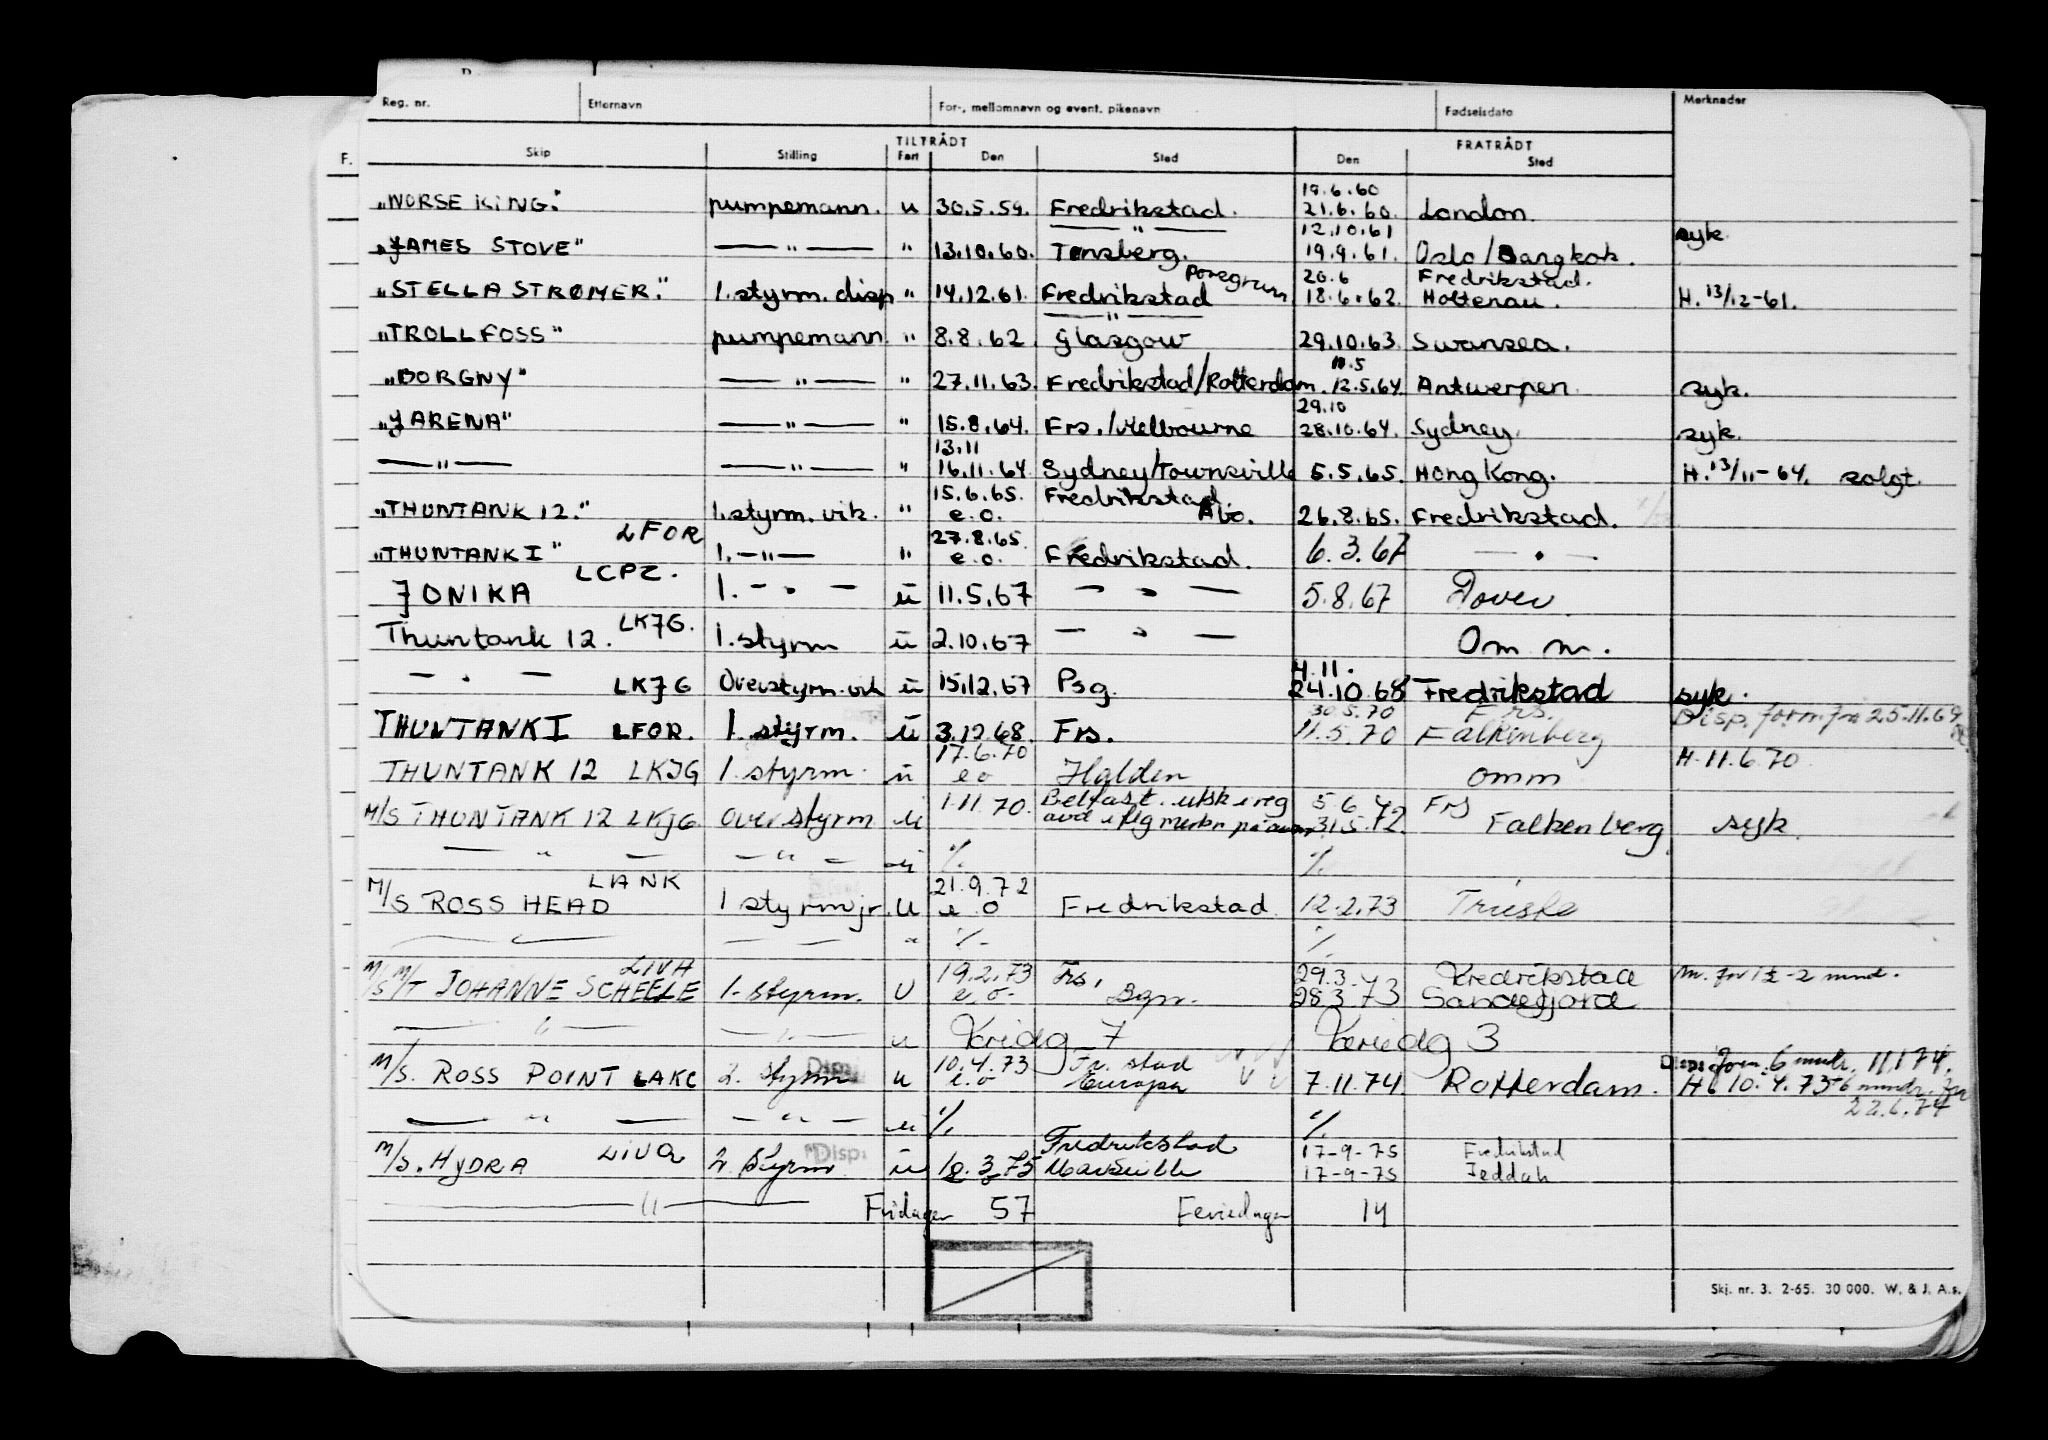 Reg. nr. Etternavn For-, mellomnavn og event. pikenavn Fødselsdato Merknader
TILTRÅDT FRATRÅDT
F. Skip Stilling Fart Den Sted Den Sted
19.6.60
"NORSE KING." pumpemann. u 30.5.59. Fredrikstad. 21.6.60. London.
— " — 12.10.61 syk
"JAMES STOVE" — " — " 13.10.60. Tønsberg. 19.9.61. Oslo/Bangkok.
Porsgrunn 20.6 Fredrikstad.
"STELLA STRØMER." 1.styrm. disp " 14.12.61. Fredrikstad 18.6.62. Holtenau. H. 13/12-61.
— " —
"TROLLFOSS" pumpemann. " 8.8.62. Glasgow 29.10.63. Swansea.
10.5
"BORGNY" — " — " 27.11.63. Fredrikstad/Rotterdam. 12.5.64. Antwerpen. syk.
29.10
"JARENA" — " — " 15.8.64. Frs./Melbourne 28.10.64. Sydney. syk.
13.11
— " — — " — " 16.11.64. Sydney/Townsville 5.5.65. Hong Kong. H. 13/11-64. solgt.
15.6.65. Fredrikstad.
"THUNTANK 12." 1.styrm. vik. " e.o. Åbo. 26.8.65. Fredrikstad.
LFOR 27.8.65.
"THUNTANK I" 1. — " — " e.o. Fredrikstad. 6.3.67 — " —
LCPZ.
JONIKA 1. — " — u 11.5.67 — " — 5.8.67 Dover.
LKJG.
Thuntank 12. 1.styrm u 2.10.67 — " — Om m.
4.11.
— " — LKJG Overstyrm. vik u 15.12.67 Psg. 24.10.68 Fredrikstad syk.
30.5.70 Frs. Disp. forn. fra 25.11.69
THUNTANK I LFOR. 1. styrm. u 3.12.68. Frs. 11.5.70 Falkenberg
17.6.70 H. 11.6.70
THUNTANK 12 LKJG 1. styrm. u e o Halden omm
1.11.70. Belfast. utsk i reg 5.6.72 Frs
M/S THUNTANK 12 LKJG Overstyrm u avd iflg merkn på 31.5.72. Falkenberg syk.
— " — — " — u % %
LANK 21.9.72
M/S ROSS HEAD 1 styrm jr. u e o Fredrikstad 12.2.73 Trieste
— " — — — " % %
LIVA 19.2.73 Frs. 29.3.73 Fredrikstad
M/S M/T JOHANNE SCHEELE 1. styrm. u e o. 28.3.73 Sandefjord
— " — — " — u Fridg 7 Feriedg 3
10.4.73 Fr. stad Disp. forn. 6 mndr. 11.1.74.
M/S. ROSS POINT LAKC 2. styrm Disp. u e.o Europa 7.11.74. Rotterdam. H 10.4.73 + 6 mndr. fra
— " — — " — u % % 22.6.74
Fredrikstad 17-9-75 Fredrikstad
M/S. HYDRA LIVQ 2. Styrm. Disp. u 18.3.75 Marseille 17-9-75 Jeddah
— " — Fridager 57 Feriedager 14
Skj. nr. 3. 2-65. 30 000. W. & J. A.s.